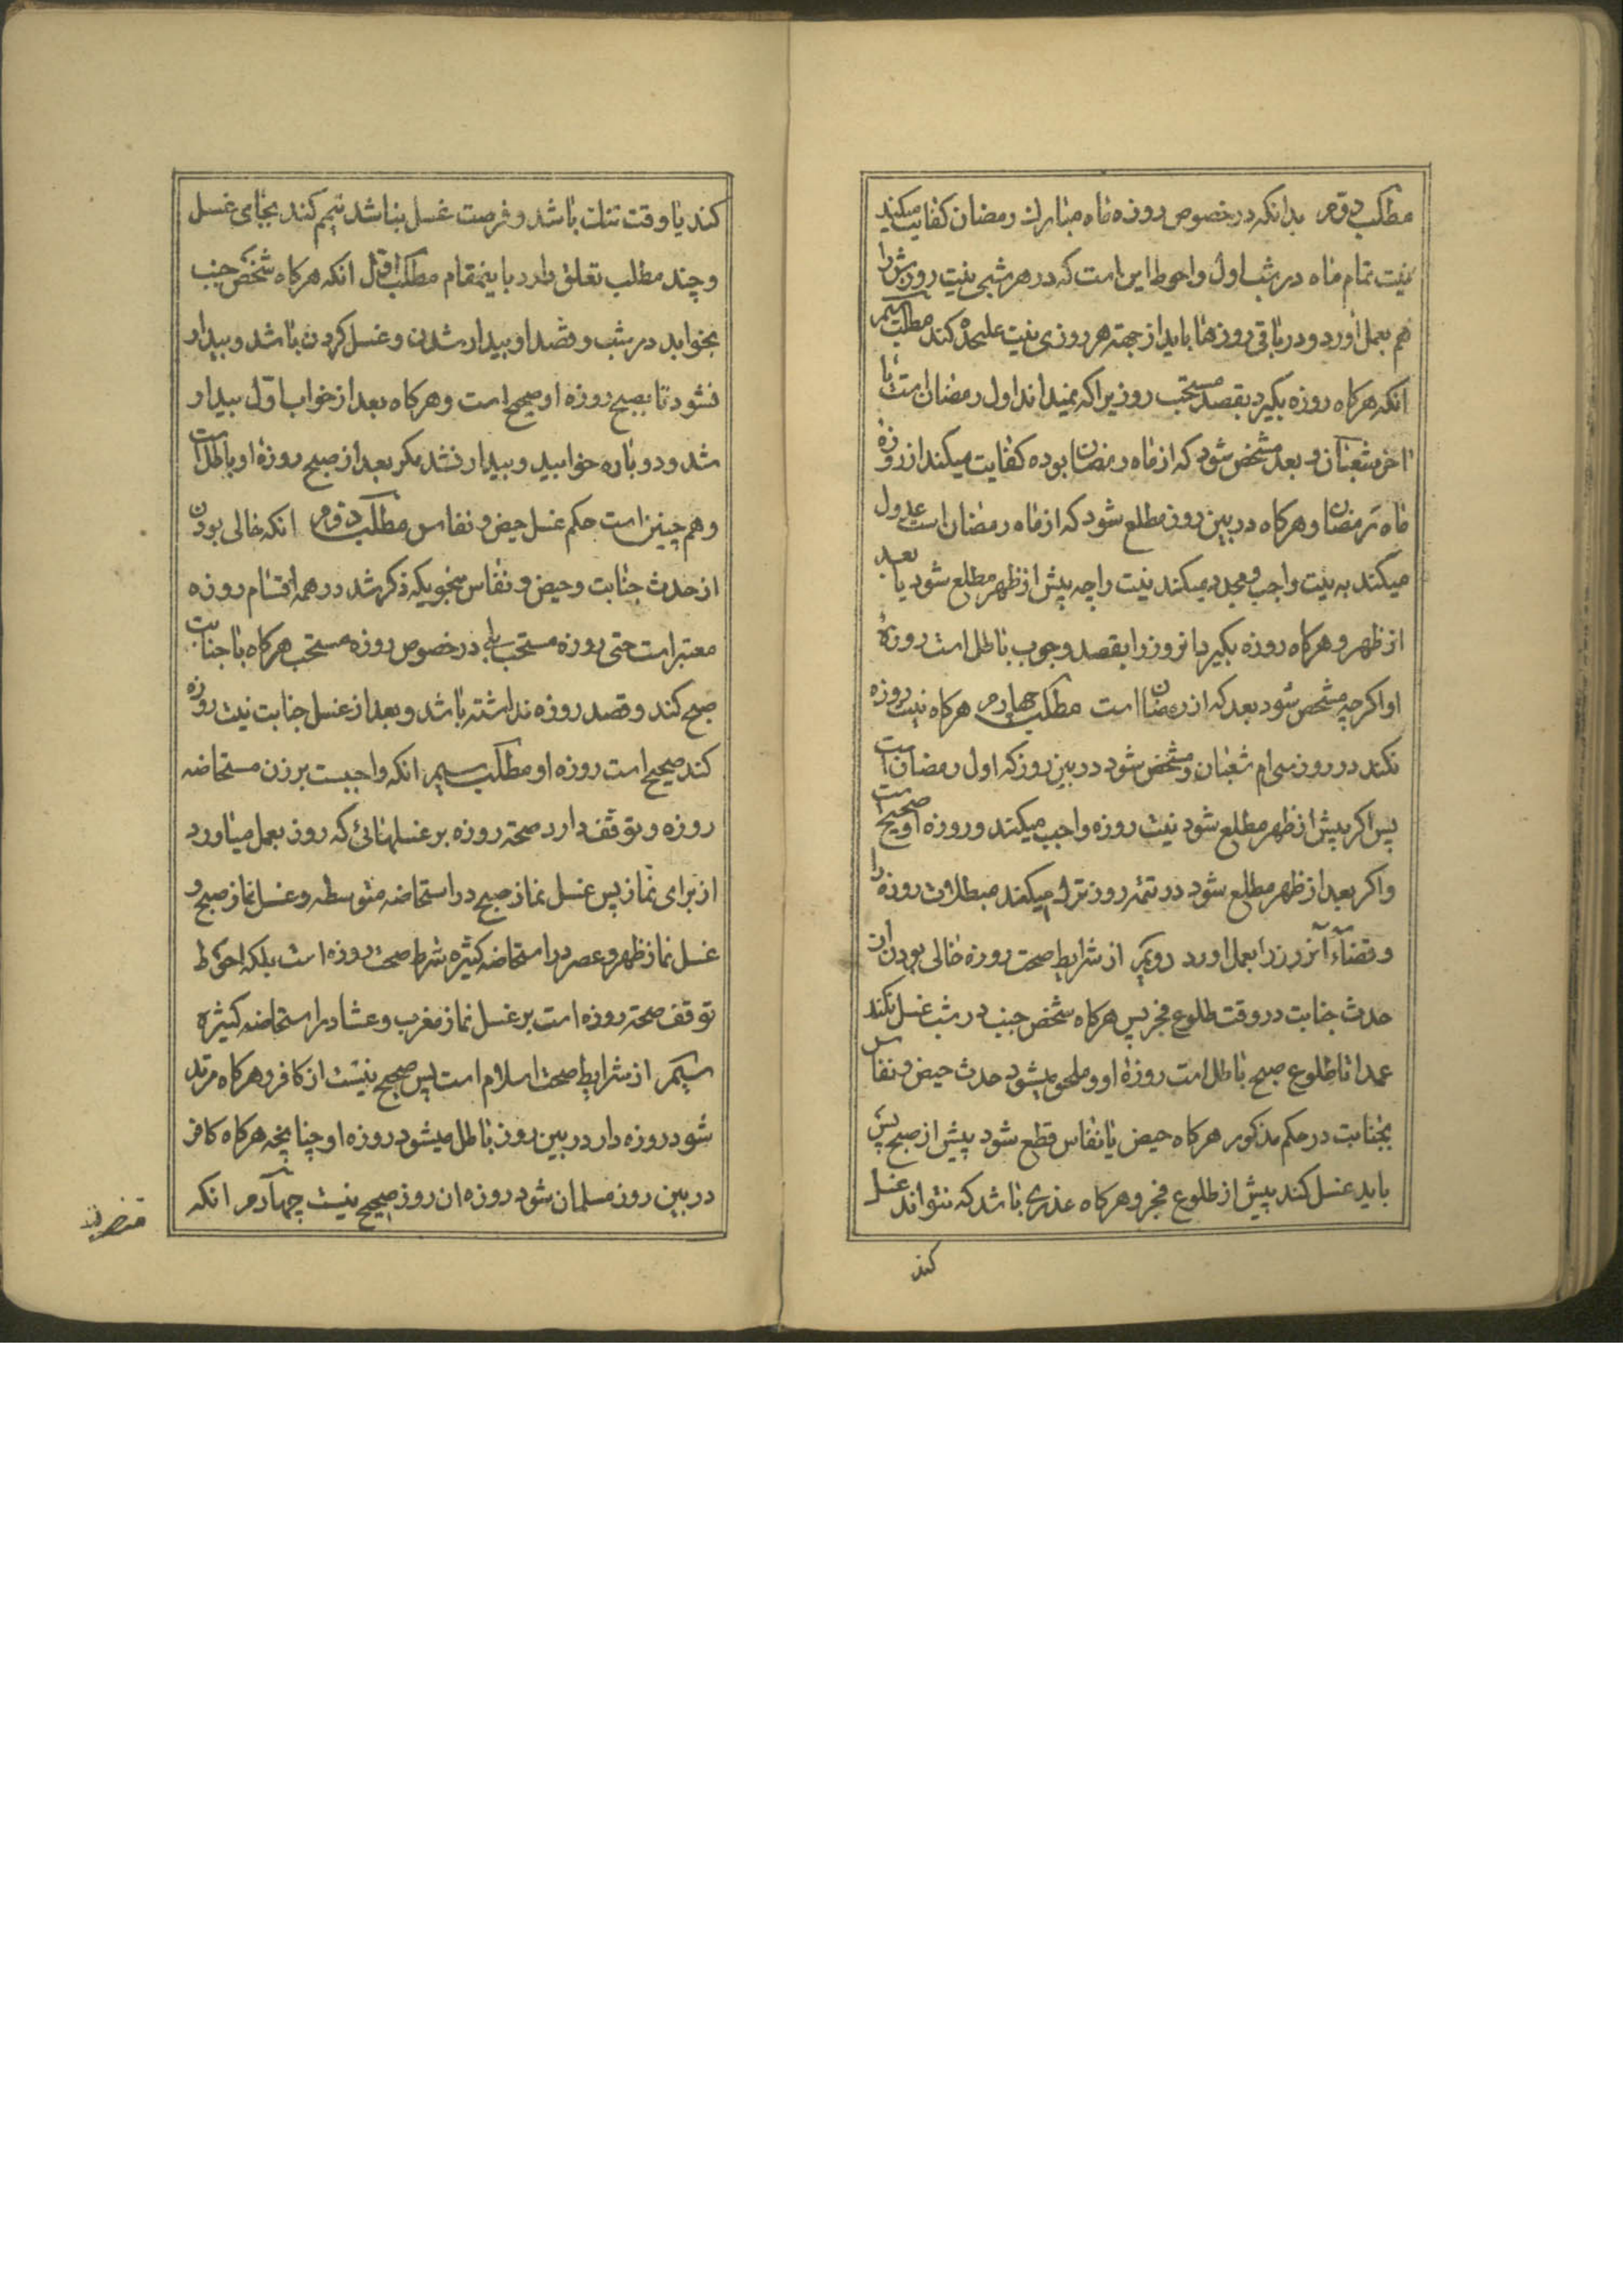 مطلب دوم بدانکه در خصوص روزه ماه مبارك رمضان کفایت میکند
نیت تمام ماه در شب اول و احوط این است که در هر شبی نیت روزه‌اش را
هم بعمل اورد و در باقی روزها باید از جهة هر روزی نیت علیحده کند مطلب سیم
انکه هرکاه روزه بکیرد بقصد مستحب روزیرا که نمیداند اول رمضان است یا
اخر شعبان و بعد مشخص شود که از ماه رمضان بوده کفایت میکند از روزهٔ
ماه رمضان و هرکاه در بین روز مطلع شود که از ماه رمضان است عدول
میکند به نیت واجب و مجدد میکند نیت را چه پیش از ظهر مطلع شود یا بعد
از ظهر و هرکاه روزه بکیرد انروز را بقصد وجوب باطل است روزهٔ
او اکرچه مشخص شود بعد که از رمضان است مطلب چهارم هرکاه نیت روزه
نکند در روز سی‌ام شعبان و مشخص شود در بین روز که اول رمضان است
پس اکر پیش از ظهر مطلع شود نیت روزه واجب میکند و روزه او صحیح است
و اکر بعد از ظهر مطلع شود در تتمه روز ترك میکند مبطلات روزه را
و قضاء آنروز را بعمل اورد دویم از شرایط صحت روزه خالی بودن از
حدث جنابت در وقت طلوع فجر پس هرکاه شخص جنب در شب غسل نکند
عمدا تا طلوع صبح باطل است روزهٔ او و ملحق میشود حدث حیض و نفاس
بجنابت در حکم مذکور هرکاه حیض یا نفاس قطع شود پیش از صبح پس
باید غسل کند پیش از طلوع فجر و هرکاه عذری باشد که نتواند غسل
کند
کند یا وقت تنك باشد و فرصت غسل نباشد تیمم کند بجای غسل
و چند مطلب تعلق دارد باینمقام مطلب اول انکه هرکاه شخص جنب
بخوابد در شب و قصد او بیدار شدن و غسل کردن باشد و بیدار
نشود تا بصبح روزه او صحیح است و هرکاه بعد از خواب اول بیدار
شد و دوباره خوابید و بیدار نشد مکر بعد از صبح روزهٔ او باطل است
و هم چنین است حکم غسل حیض و نفاس مطلب دوم انکه خالی بودن
از حدث جنابت و حیض و نفاس بنحویکه ذکر شد در همه اقسام روزه
معتبر است حتی روزه مستحب بلی در خصوص روزه مستحب هرکاه با جنابت
صبح کند و قصد روزه نداشته باشد و بعد از غسل جنابت نیت روزه
کند صحیح است روزه او مطلب سیم انکه واجبست بر زن مستحاضه
روزه و توقف دارد صحة روزه بر غسلهائی که روز بعمل میاورد
از برای نماز پس غسل نماز صبح در استحاضه متوسطه و غسل نماز صبح و
غسل نماز ظهر و عصر در استحاضه کثیره شرط صحت روزه است بلکه احوط
توقف صحة روزه است بر غسل نماز مغرب و عشا در استحاضه کثیره
سیم از شرایط صحت اسلام است پس صحیح نیست از کافر و هرکاه مرتد
شود روزه دار در بین روز باطل میشود روزه او چنانچه هرکاه کافر
در بین روز مسلمان شود روزه ان روز صحیح نیست چهارم انکه